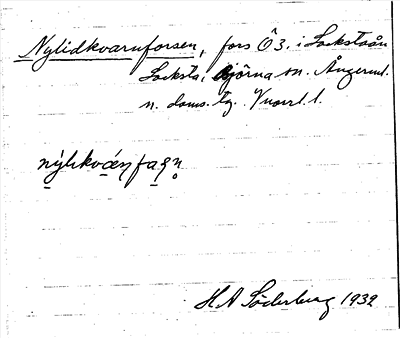 Nylidkvarnforsen, fors Ö 3. i Lockstaån
Locksta, Björna sn. Ångerml.
n. doms. tg. Vnorrl. l.
H A Söderberg 1932